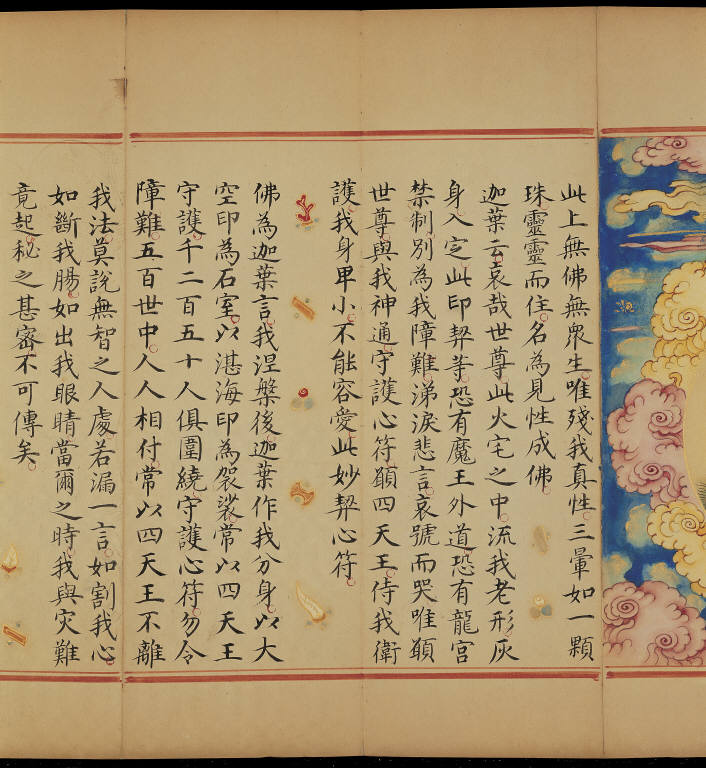 此上無佛無衆生唯殘我真性三暈如一顆
珠靈靈而住名為見性成佛
迦葉云哀哉世尊此火宅之中流我老形灰
身入定此印契等恐有魔王外道恐有龍宮
禁制別為我障難涕淚悲言哀號而哭唯願
世尊與我神通守護心符願四天王侍我衛
護我身卑小不能容愛此妙契心符
佛為迦葉言我涅槃後迦葉作我分身以大
空印為石室以湛海印為袈裟常以四天王
守護千二百五十人俱圍繞守護心符勿令
障難五百世中人人相付常以四天王不離
我法莫說無智之人處若漏一言如割我心
如斷我腸如出我眼睛當爾之時我與灾難
竟起秘之甚密不可傳矣